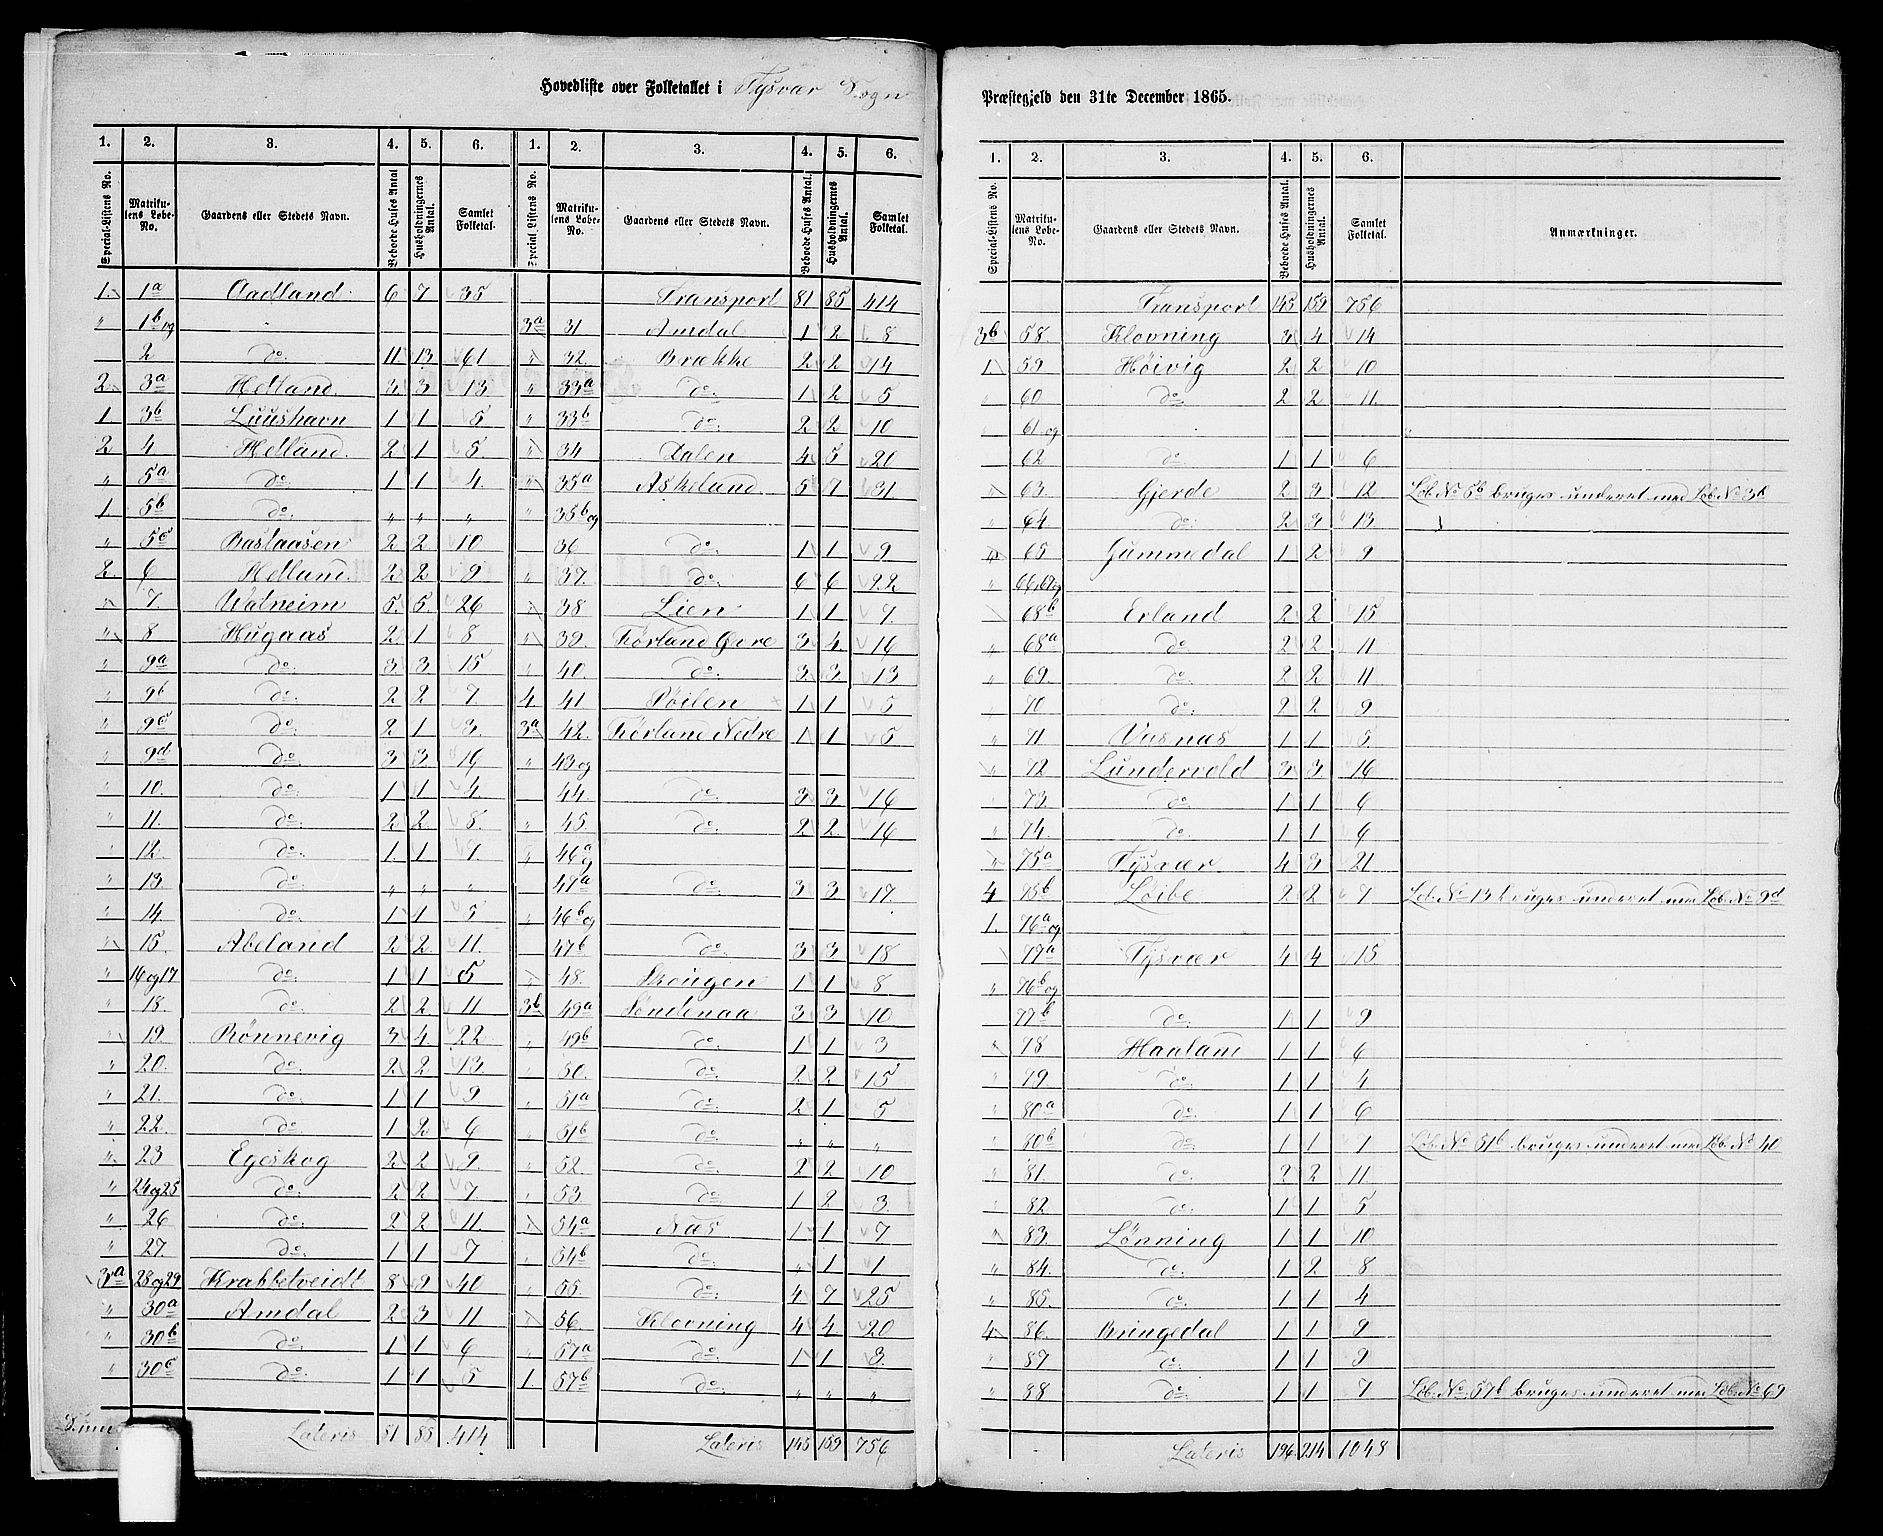 Hovedliste over Folketallet i Tysvær Sogn
Præstegjeld den 31te December 1865.
1. 2. 3. 4. 5. 6. 1. 2. 3. 4. 5. 6.
Special-Listens No. Matrikulens Løbe-No. Gaardens eller Stedets Navn. Beboede Huses Antal Husholdningernes Antal. Samlet Folketal. Special Listens No. Matrikulens Løbe-No. Gaardens eller Stedets Navn. Beboede Huses Antal. Husholdningernes Antal. Samlet Folketal.
1. 1a Aadland 6 7 35
" 1b og
2 do 11 13 61
2 3a Hetland 3 3 13
1. 3b Luushavn 1 1 5
2 4 Hetland 2 1 5
" 5a do 1 1 4
1. 5b do " " "
" 5c Bastaasen 2 2 10
2. 6 Hetland 2 2 9
" 7. Watneim 5 5 26
" 8 Hugaas 2 1 8
" 9a do 3 3 15
" 9b do 2 2 7
" 9c do 2 1 3
" 9d do 3 3 16
" 10. do 1 1 4
" 11. do 2 2 8
" 12. do 1 1 7
" 13 do " " "
" 14 do 1 1 5
" 15. Abeland 2 2 11
" 16 og 17 do 1 1 5
" 18. do 2 2 11
" 19. Rønnevig 3 4 22
" 20. do 2 2 13
" 21. do 1 1 9
" 22. do 1 2 6
" 23 Egeskog 2 2 9
" 24 og 25 do 2 2 7
" 26 do 2 2 11
" 27 do 1 1 7
3a 28 og 29 Krabbetveidt 8 9 40
" 30a Amdal 2 3 11
" 30b do 1 1 6
" 30c do 1 1 5
Lateris 81 85 414
Transport 81 85 414
3a 31 Amdal 1 2 8
" 32. Brække 2 2 14
" 33a do 1 2 5
" 33b do 2 2 10
" 34 Dalen 4 5 20
" 35a Askeland 5 7 31
" 35b og
36 do 1 1 9
" 37. do 6 6 22
" 38 Lien 1 1 7
" 39. Førland Øvre 3 4 16
" 40. do 3 3 13
4. 41 Døilen 1 1 5
3a 42. Førland Nedre 1 1 5
" 43 og
44. do 3 3 16
" 45. do 2 2 16
" 46a og
47a do 3 3 17
46b og
47b do 3 3 18
" 48. Skougen 1 1 8
3b 49a Søndenaa 3 3 10
" 49b do 1 1 3
" 50. do 2 2 15
" 51a do 2 1 5
" 51b do " " "
" 52. do 2 2 10
" 53. do 1 2 3
" 54a Næs 1 1 7
" 54b do " 1 1
" 55. do 4 7 25
" 56 Klovning 4 4 20
" 57a do 1 1 3
1 57b do " " "
Lateris 145 159 756
1. 2. 3. 4. 5. 6.
Special-Listens No. Matrikulens Løbe-No. Gaardens eller Stedets Navn. Beboede Huses Antal. Husholdningernes Antal. Samlet Folketal. Anmærkninger.
Transport 145 159 756
3b 58. Klovning 3 4 14
1 59 Høivig 2 2 10
" 60 do 2 2 11
" 61 og
62 do 1 1 6
" 63. Gjerde 2 3 12 Løb. No 5b bruges underet med Løb. No 3b
" 64 do 2 3 13
" 65 Gummedal 1 2 9
" 66, 67 og
68b Erland 2 2 15
" 68a do 2 2 11
" 69. do 2 2 11
" 70 do 2 2 9
" 71 Vasnæs 1 1 5
" 72 Lundervold 3 3 16
73. do 1 1 6
" 74. do 1 1 6
" 75a Tysvær 4 3 21
4 75b Løibe 2 2 7 Løb. No 13 bruges underet med Løb. No 9d
1. 76a og
77a Tysvær 4 4 15
" 76b og
77b do 1 1 9
" 78 Haaland 1 1 6
" 79. do 1 1 4
" 80a do 1 1 6
" 80b do 1 1 1 Løb. No 51b bruges underet med Løb. No 40
" 81. do 2 2 11
" 82 do 1 1 5
" 83. Lønning 1 1 10
" 84. do 1 2 8
" 85. do 1 1 4
4 86. Bringedal 1 1 9
" 87 do 1 1 9
" 88 do 1 1 7 Løb. No. 57b bruges underet med Løb. No 69
Lateris 196 214 1048